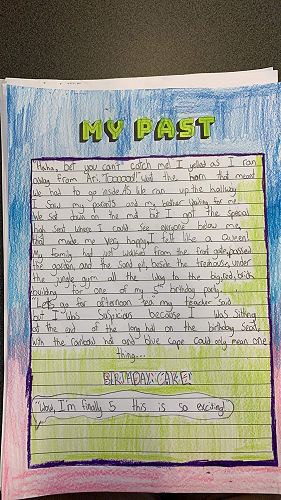 MY PAST
"Haha, bet you can't catch me! I yelled as I ran
away from Ari. "Toooot!" Went the horn that meant
we had to go inside. As we ran up the hallway
I saw my parents and my brother waiting for me.
We sat down on the mat but I got the special
high seat where I could see everyone below me
that made me very happy. I felt like a Queen!
My family had just walked from the front gate, passed
the garden and the sand pit, beside the treehouse, under
the jungle gym all the way to the big, red, brick
building for one of my 5th birthday party.
"Lets go for afternoon tea" my teacher said
but I was suspicious because I was sitting
at the end of the long hall on the birthday seat,
with the rainbow hat and blue cape could only mean one
thing...
BIRTHDAY CAKE!
"Wow, I'm finally 5 this is so exciting!